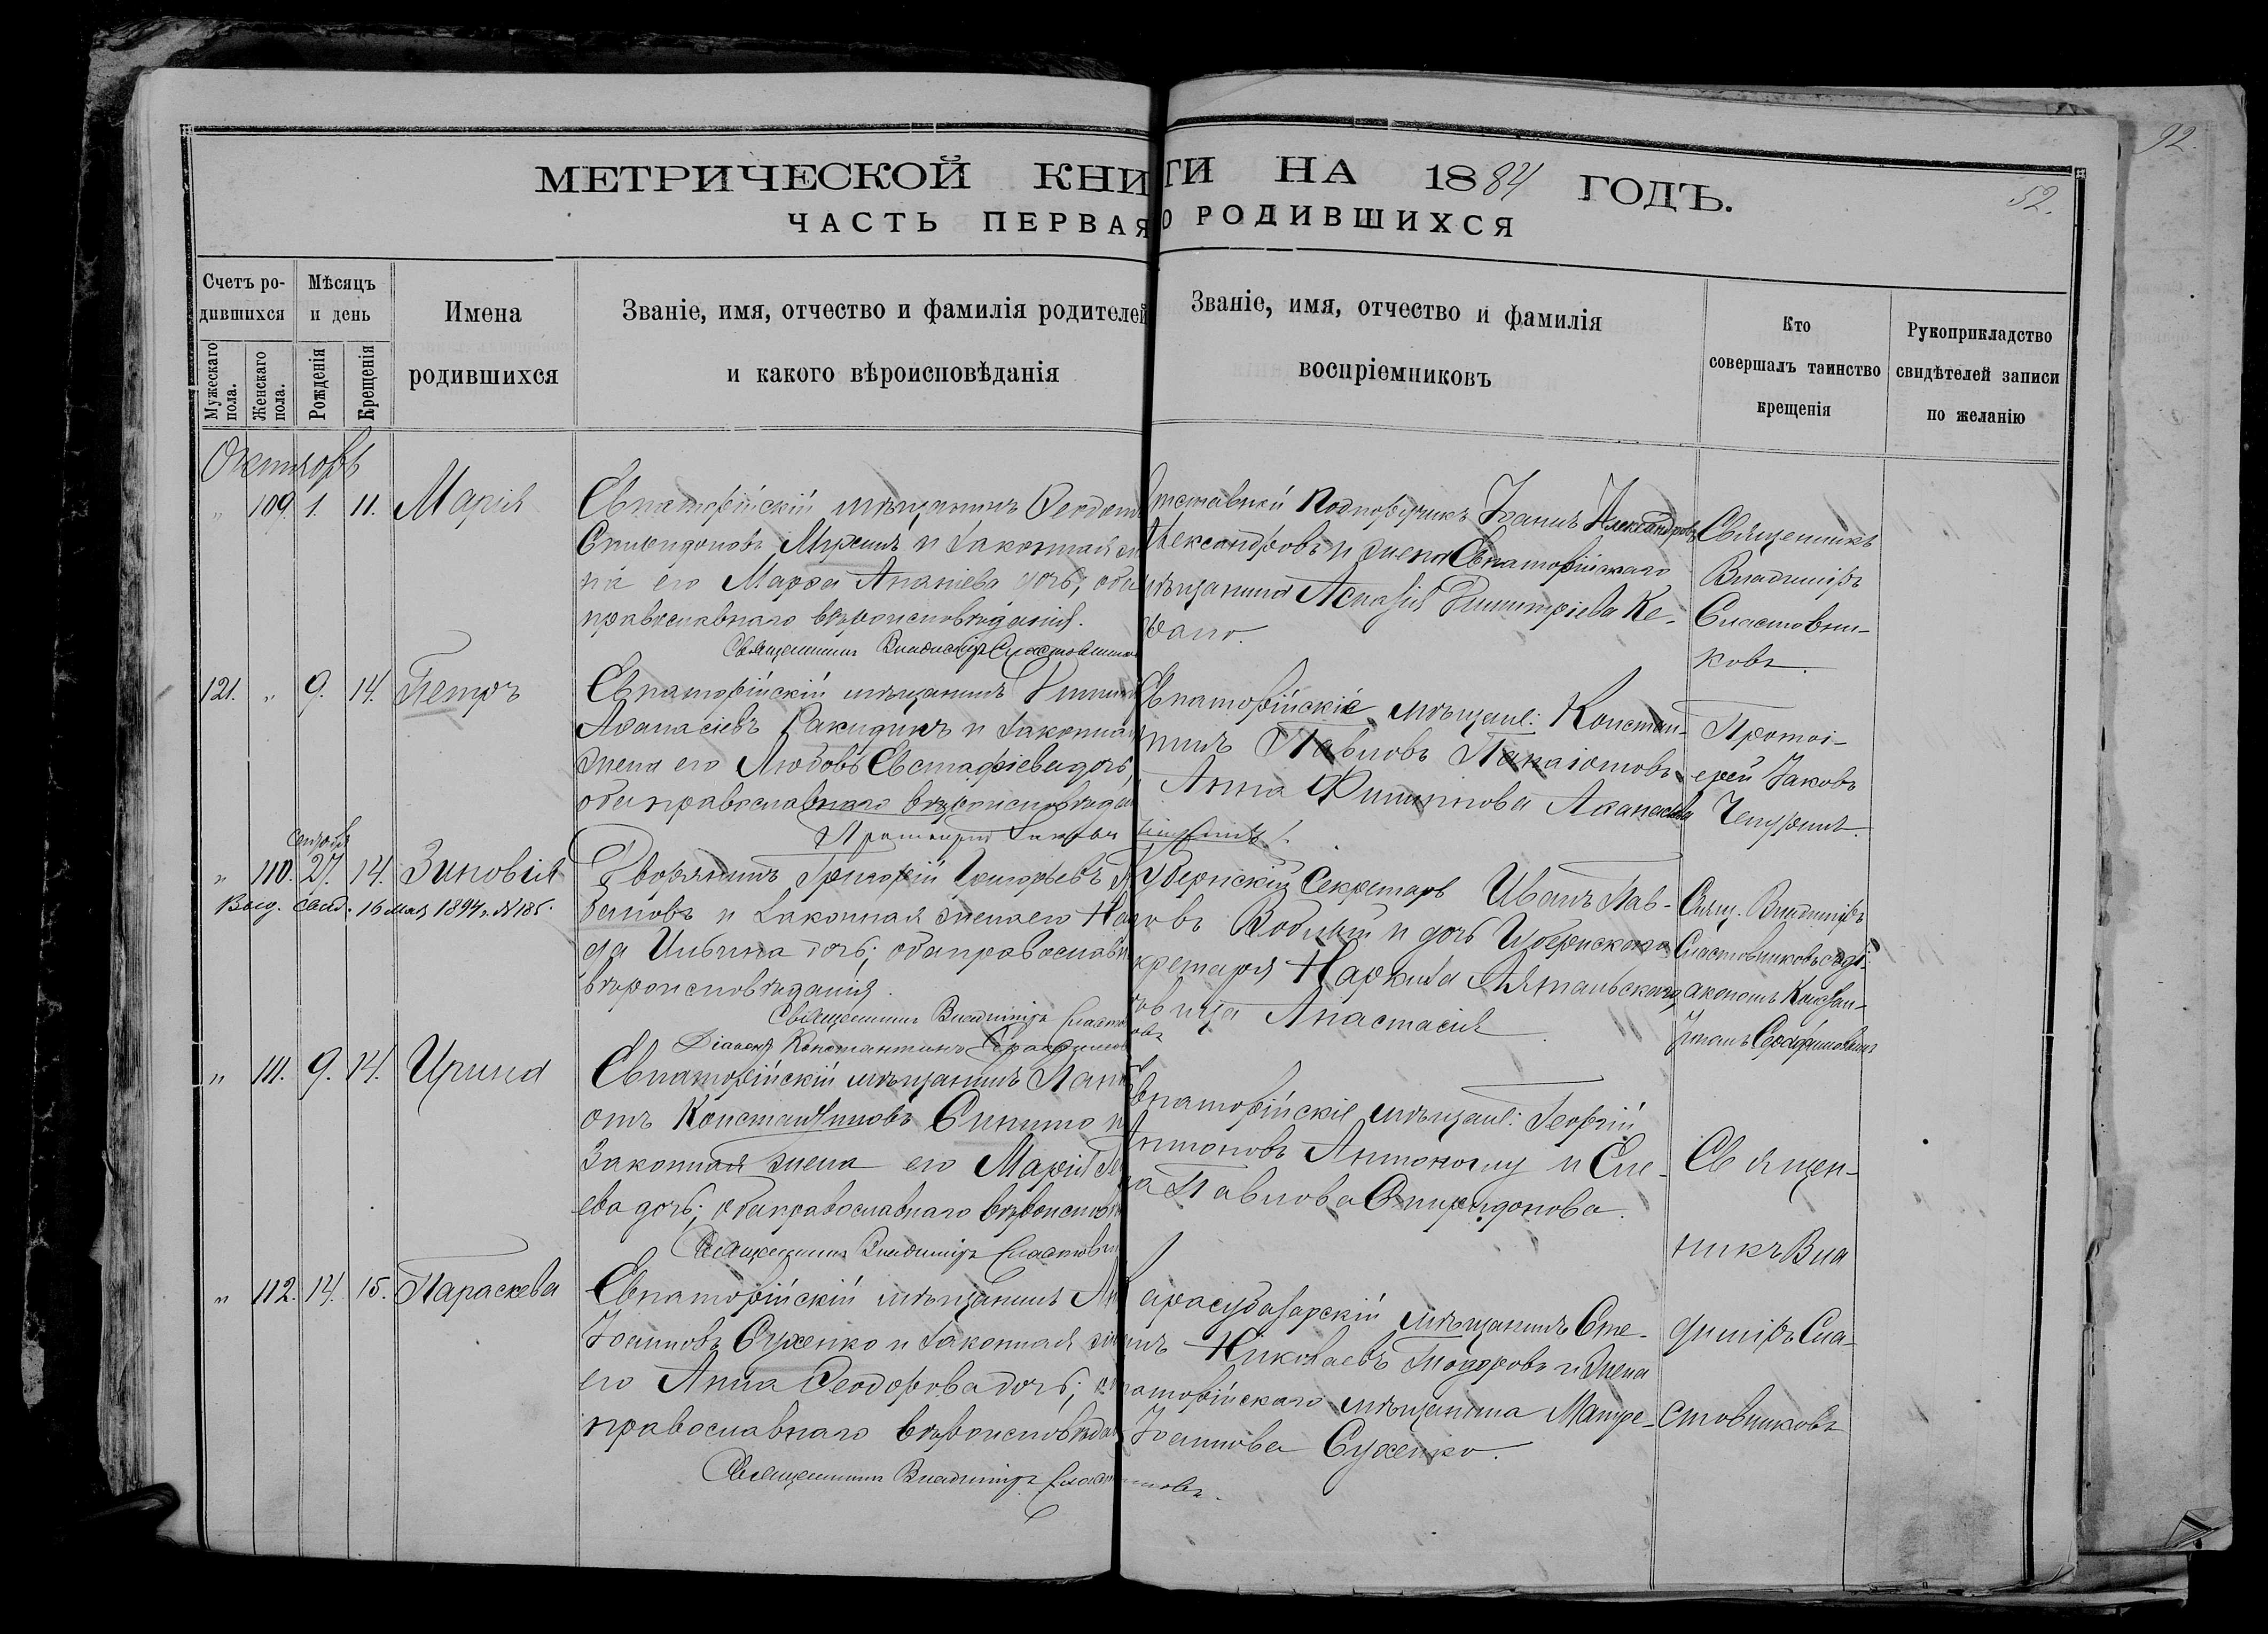 92.
52.
МЕТРИЧЕСКОЙ КНИГИ НА 1884 ГОДЪ.
ЧАСТЬ ПЕРВАЯ О РОДИВШИХСЯ
Счетъ ро-
дившихся
Мужескаго пола.
Женскаго пола.
Мѣсяцъ
и день
Рожденія
Крещенія
Имена
родившихся
Званіе, имя, отчество и фамилія родителей
и какого вѣроисповѣданія
Званіе, имя, отчество и фамилія
воспріемниковъ
Кто
совершалъ таинство
крещенія
Рукоприкладство
свидѣтелей записи
по желанію
Октябрь
" 109. 1. 11. Марія
Евпаторійскій мѣщанинъ
Спиридоновъ и законная
на его Марѳа Ананіева дочь, оба
православнаго вѣроисповѣданія.
Священникъ Владиміръ Сластовник
Отставной Подпоручикъ Іоаннъ Александровъ
Александровъ и жена Евпаторійскаго
мѣщанина Аспазія Димитріева Ке-
фано.
Священникъ
Владиміръ
Сластовни-
ковъ.
121. " 9. 14. Петръ
Евпаторійскій мѣщанинъ
Аѳанасіевъ и законная
жена его Любовь Евстафіева дочь,
оба православнаго вѣроисповѣдан
Протоіерей Іаковъ Чепуринъ.
Евпаторійскіе мѣщане: Констан-
тинъ Павловъ Панаіотовъ и
Анна Филиппова Аѳанасьева
Протоі-
ерей Іаковъ
Чепуринъ.
сентября
" 110. 27. 14. Зиновія
Выд. свид. 16 мая 1894 г. № 185.
Дворянинъ Григорій Григорьевъ
бановъ и законная жена его На
да Ильина дочь; оба православн
вѣроисповѣданія.
Священникъ Владиміръ Сластов
Діаконъ Константинъ Серафимов
Губернскій Секретарь Иванъ Пав-
ловъ и дочь Губернскаго
кретаря Наркиса
вица Анастасія.
Свящ. Владиміръ
Сластовниковъ съ ді-
акономъ Констан-
тиномъ Серафимовымъ
" 111. 9. 14. Ирина
Евпаторійскій мѣщанинъ Панаі
отъ Константиновъ и
законная жена его Марія
ева дочь; оба православнаго вѣроисповѣ
Священникъ Владиміръ Сластовни
Евпаторійскіе мѣщане: Георгій
Антоновъ Антоноглу и Еле-
на Павлова Спиридонова.
Священ-
никъ Вла
" 112. 14. 15. Параскева
Евпаторійскій мѣщанинъ
Іоанновъ Сухенко и законная жена
его Анна Ѳеодорова дочь; оба
православнаго вѣроисповѣдан
Священникъ Владиміръ Сластовниковъ.
Карасубазарскій мѣщанинъ Сте-
Николаевъ Тодоровъ и жена
Евпаторійскаго мѣщанина Матре-
Іоаннова Сухенко.
диміръ Сла-
стовниковъ